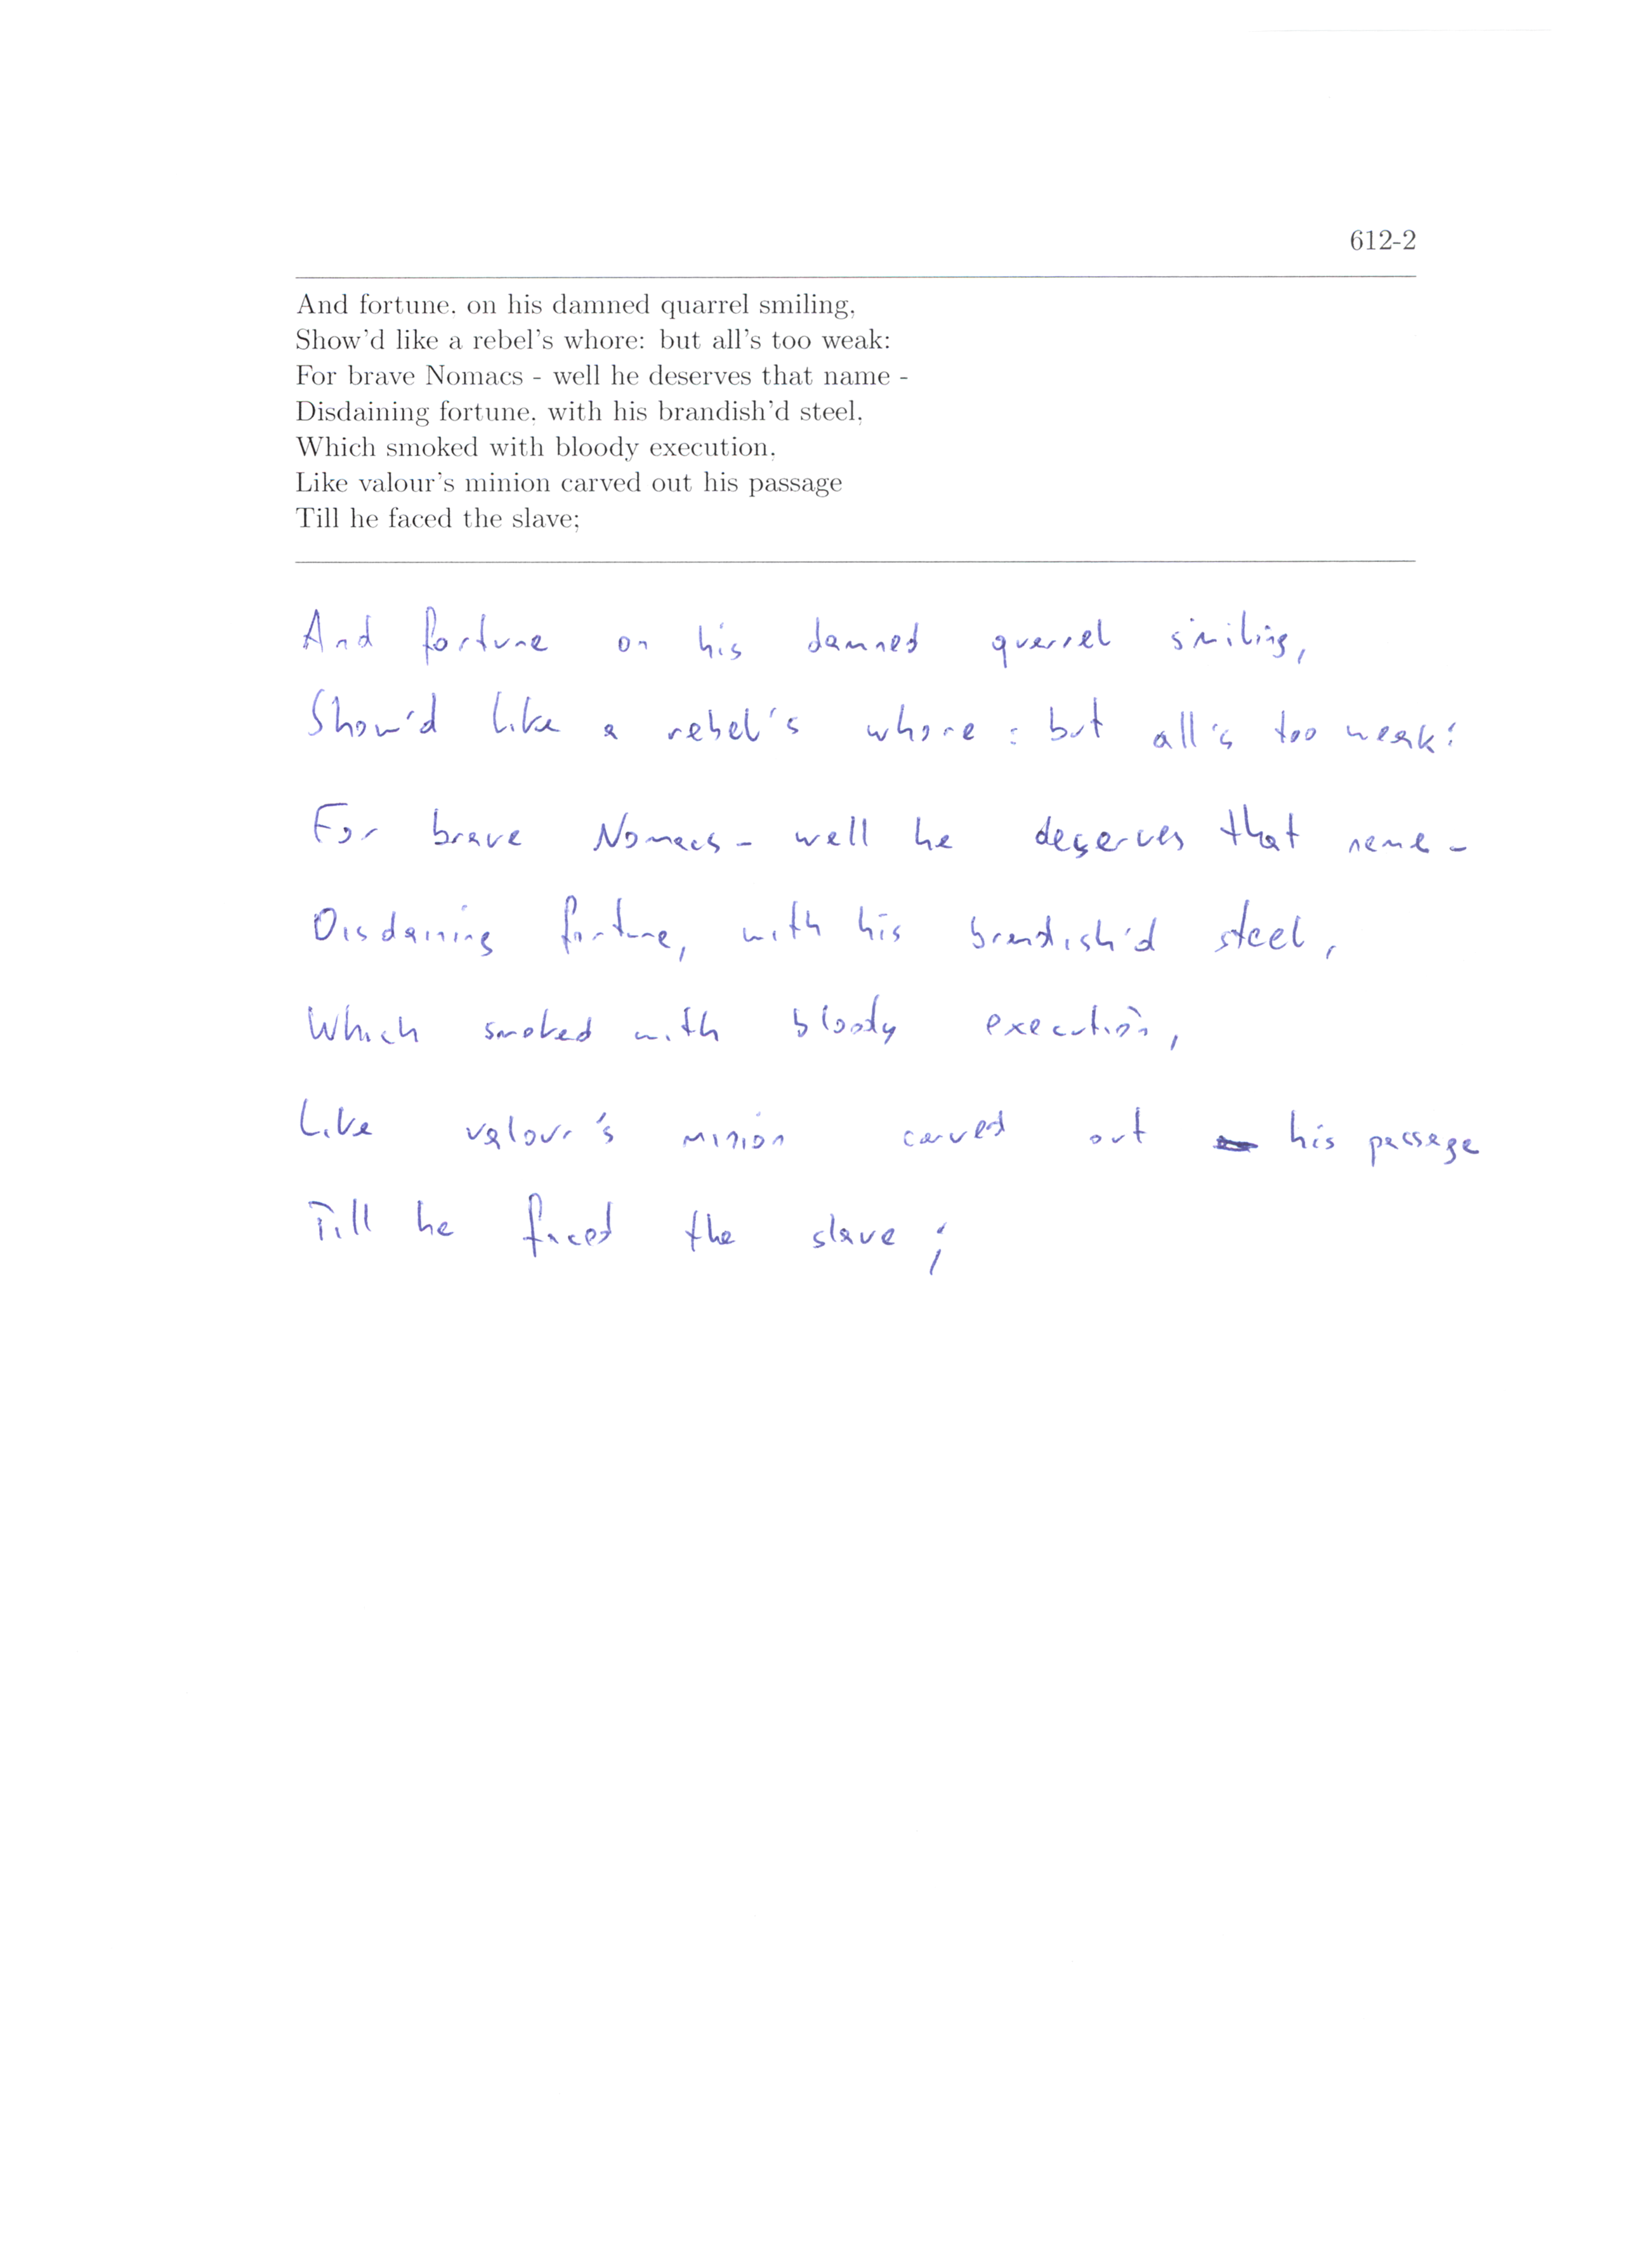 612-2
And fortune, on his damned quarrel smiling,
Show'd like a rebel's whore: but all's too weak:
For brave Nomacs - well he deserves that name -
Disdaining fortune, with his brandish'd steel,
Which smoked with bloody execution,
Like valour's minion carved out his passage
Till he faced the slave;
And fortune on his damned quarrel smiling,
Show'd like a rebel's whore : but all's too weak:
For brave Nomacs - well he deserves that name -
Disdaining fortune, with his brandish'd steel,
Which smoked with bloody execution,
Like valour's minion carved out his passage
Till he faced the slave ;